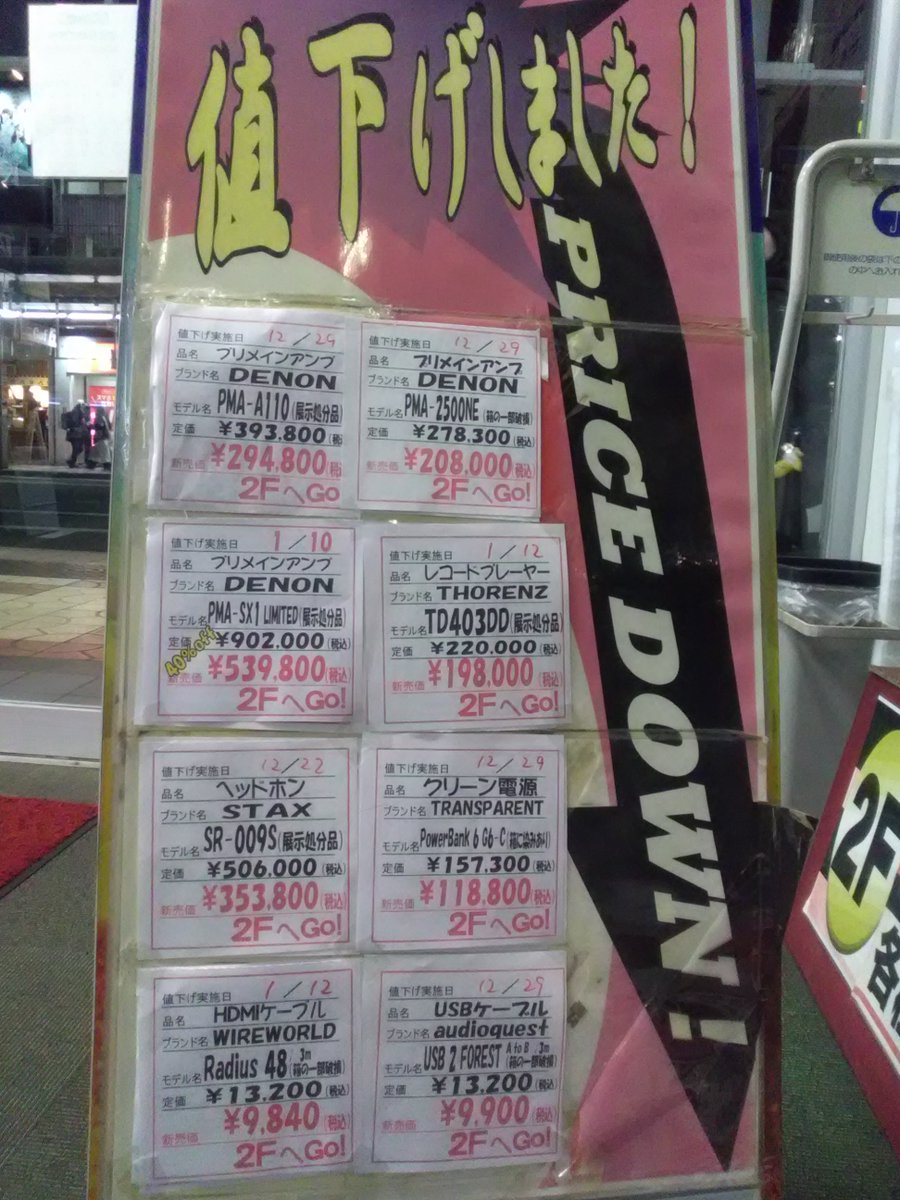 値下げしました!
PRICE DOWN!
値下げ実施日 12/29
品名 プリメインアンプ
ブランド名 DENON
モデル名 PMA-A110(展示処分品)
定価 ¥393,800(税
新売価 ¥294,800(税
2FへGo!
値下げ実施日 12/29
品名 プリメインアンプ
ブランド名 DENON
モデル名 PMA-2500NE(箱の一部破損)
定価 ¥278,300(税込)
新売価 ¥208,000(税込)
2FへGo!
値下げ実施日 1/10
品名 プリメインアンプ
ブランド名 DENON
モデル名 PMA-SX1 LIMITED(展示処分品)
定価 ¥902,000(税込)
40%off
新売価 ¥539,800(税込)
2FへGo!
値下げ実施日 1/12
品名 レコードプレーヤー
ブランド名 THORENZ
モデル名 TD403DD(展示処分品)
定価 ¥220,000(税込)
新売価 ¥198,000(税込)
2FへGo!
値下げ実施日 12/22
品名 ヘッドホン
ブランド名 STAX
モデル名 SR-009S(展示処分品)
定価 ¥506,000(税込)
新売価 ¥353,800(税込)
2FへGo!
値下げ実施日 12/29
品名 クリーン電源
ブランド名 TRANSPARENT
モデル名 PowerBank 6 G6-C(箱に染みあり)
定価 ¥157,300(税込)
新売価 ¥118,800(税込)
2FへGo!
値下げ実施日 1/12
品名 HDMIケーブル
ブランド名 WIREWORLD
モデル名 Radius 48 3m (箱の一部破損)
定価 ¥13,200(税込)
新売価 ¥9,840(税込)
2FへGo!
値下げ実施日 12/29
品名 USBケーブル
ブランド名 audioquest
モデル名 USB 2 FOREST AtoB .3m (箱の一部破損)
定価 ¥13,200(税込)
新売価 ¥9,900(税込)
2FへGo!
御使用後の袋は下の
の中へお入れ
2F
各